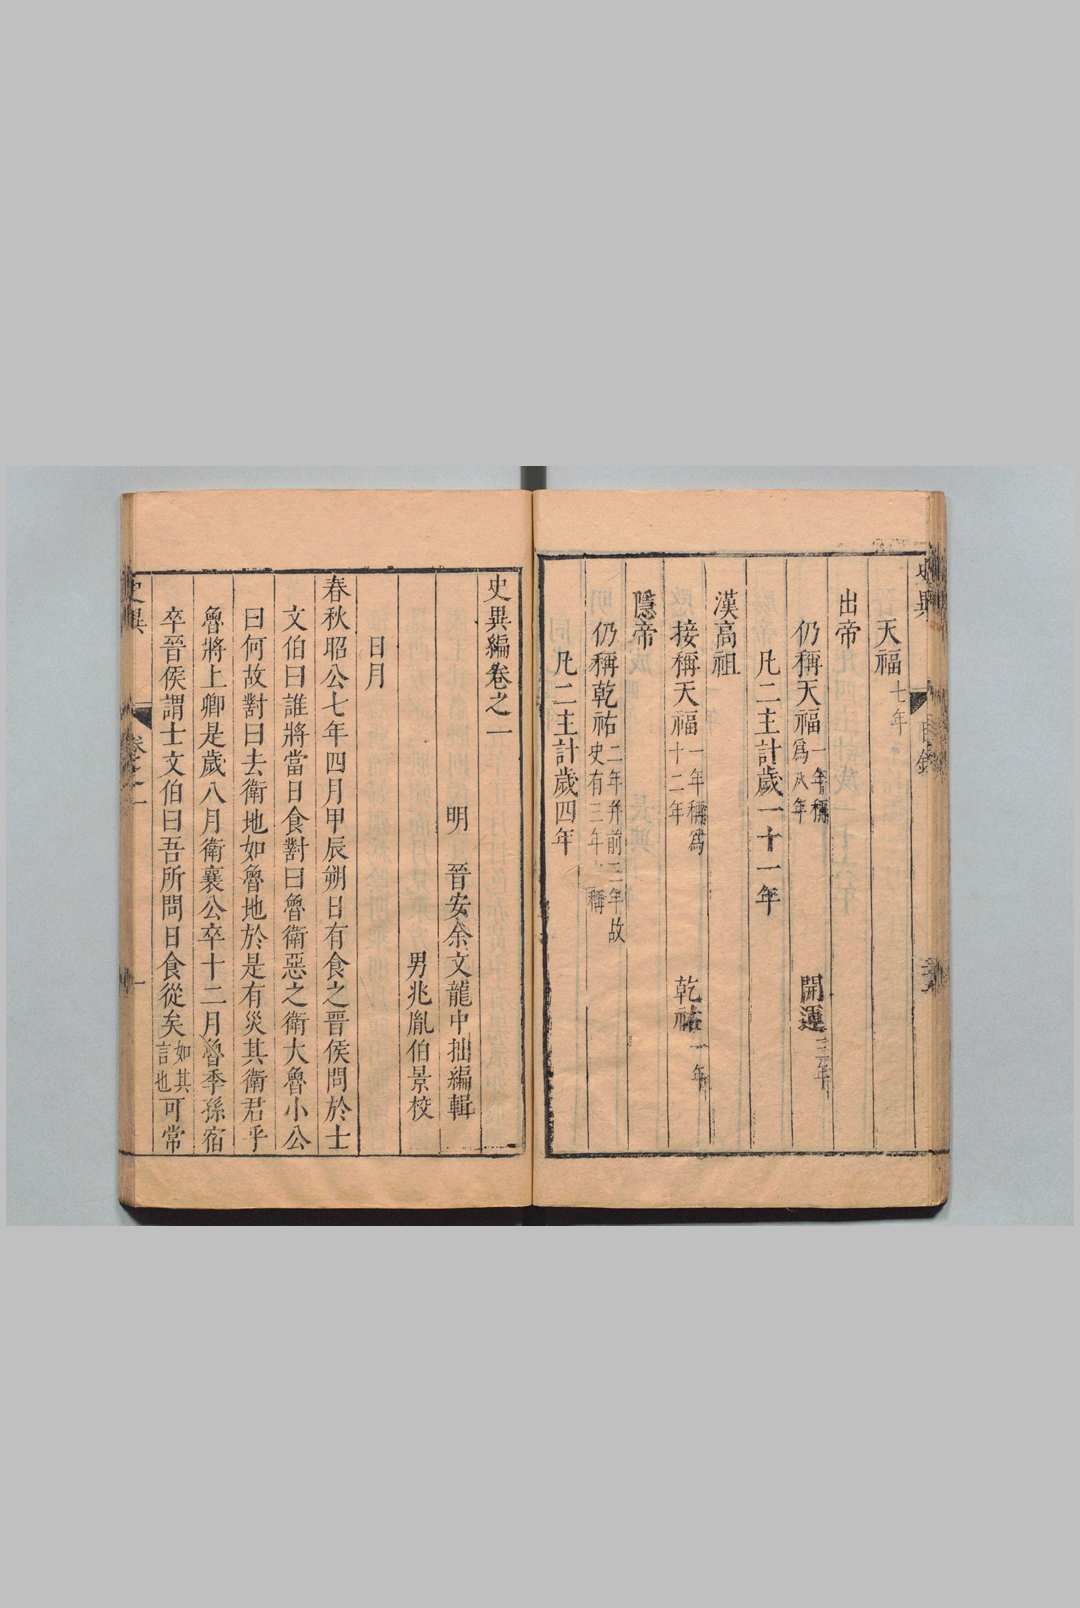 史異
目錄
天福七年
出帝
仍稱天福一年稱爲八年 開運三年
凡二主計歲一十一年
漢高祖
接稱天福一年稱爲十二年 乾祐一年
隱帝
仍稱乾祐二年并前三年故史有三年稱
凡二主計歲四年
史異編卷之一
明 晉安余文龍中拙編輯
男兆胤伯景校
日月
春秋昭公七年四月甲辰朔日有食之晉侯問於士
文伯曰誰將當日食對曰魯衛惡之衛大魯小公
曰何故對曰去衛地如魯地於是有災其衛君乎
魯將上卿是歲八月衛襄公卒十二月魯季孫宿
卒晉侯謂士文伯曰吾所問日食從矣如其言也可常
史異
卷之一
一